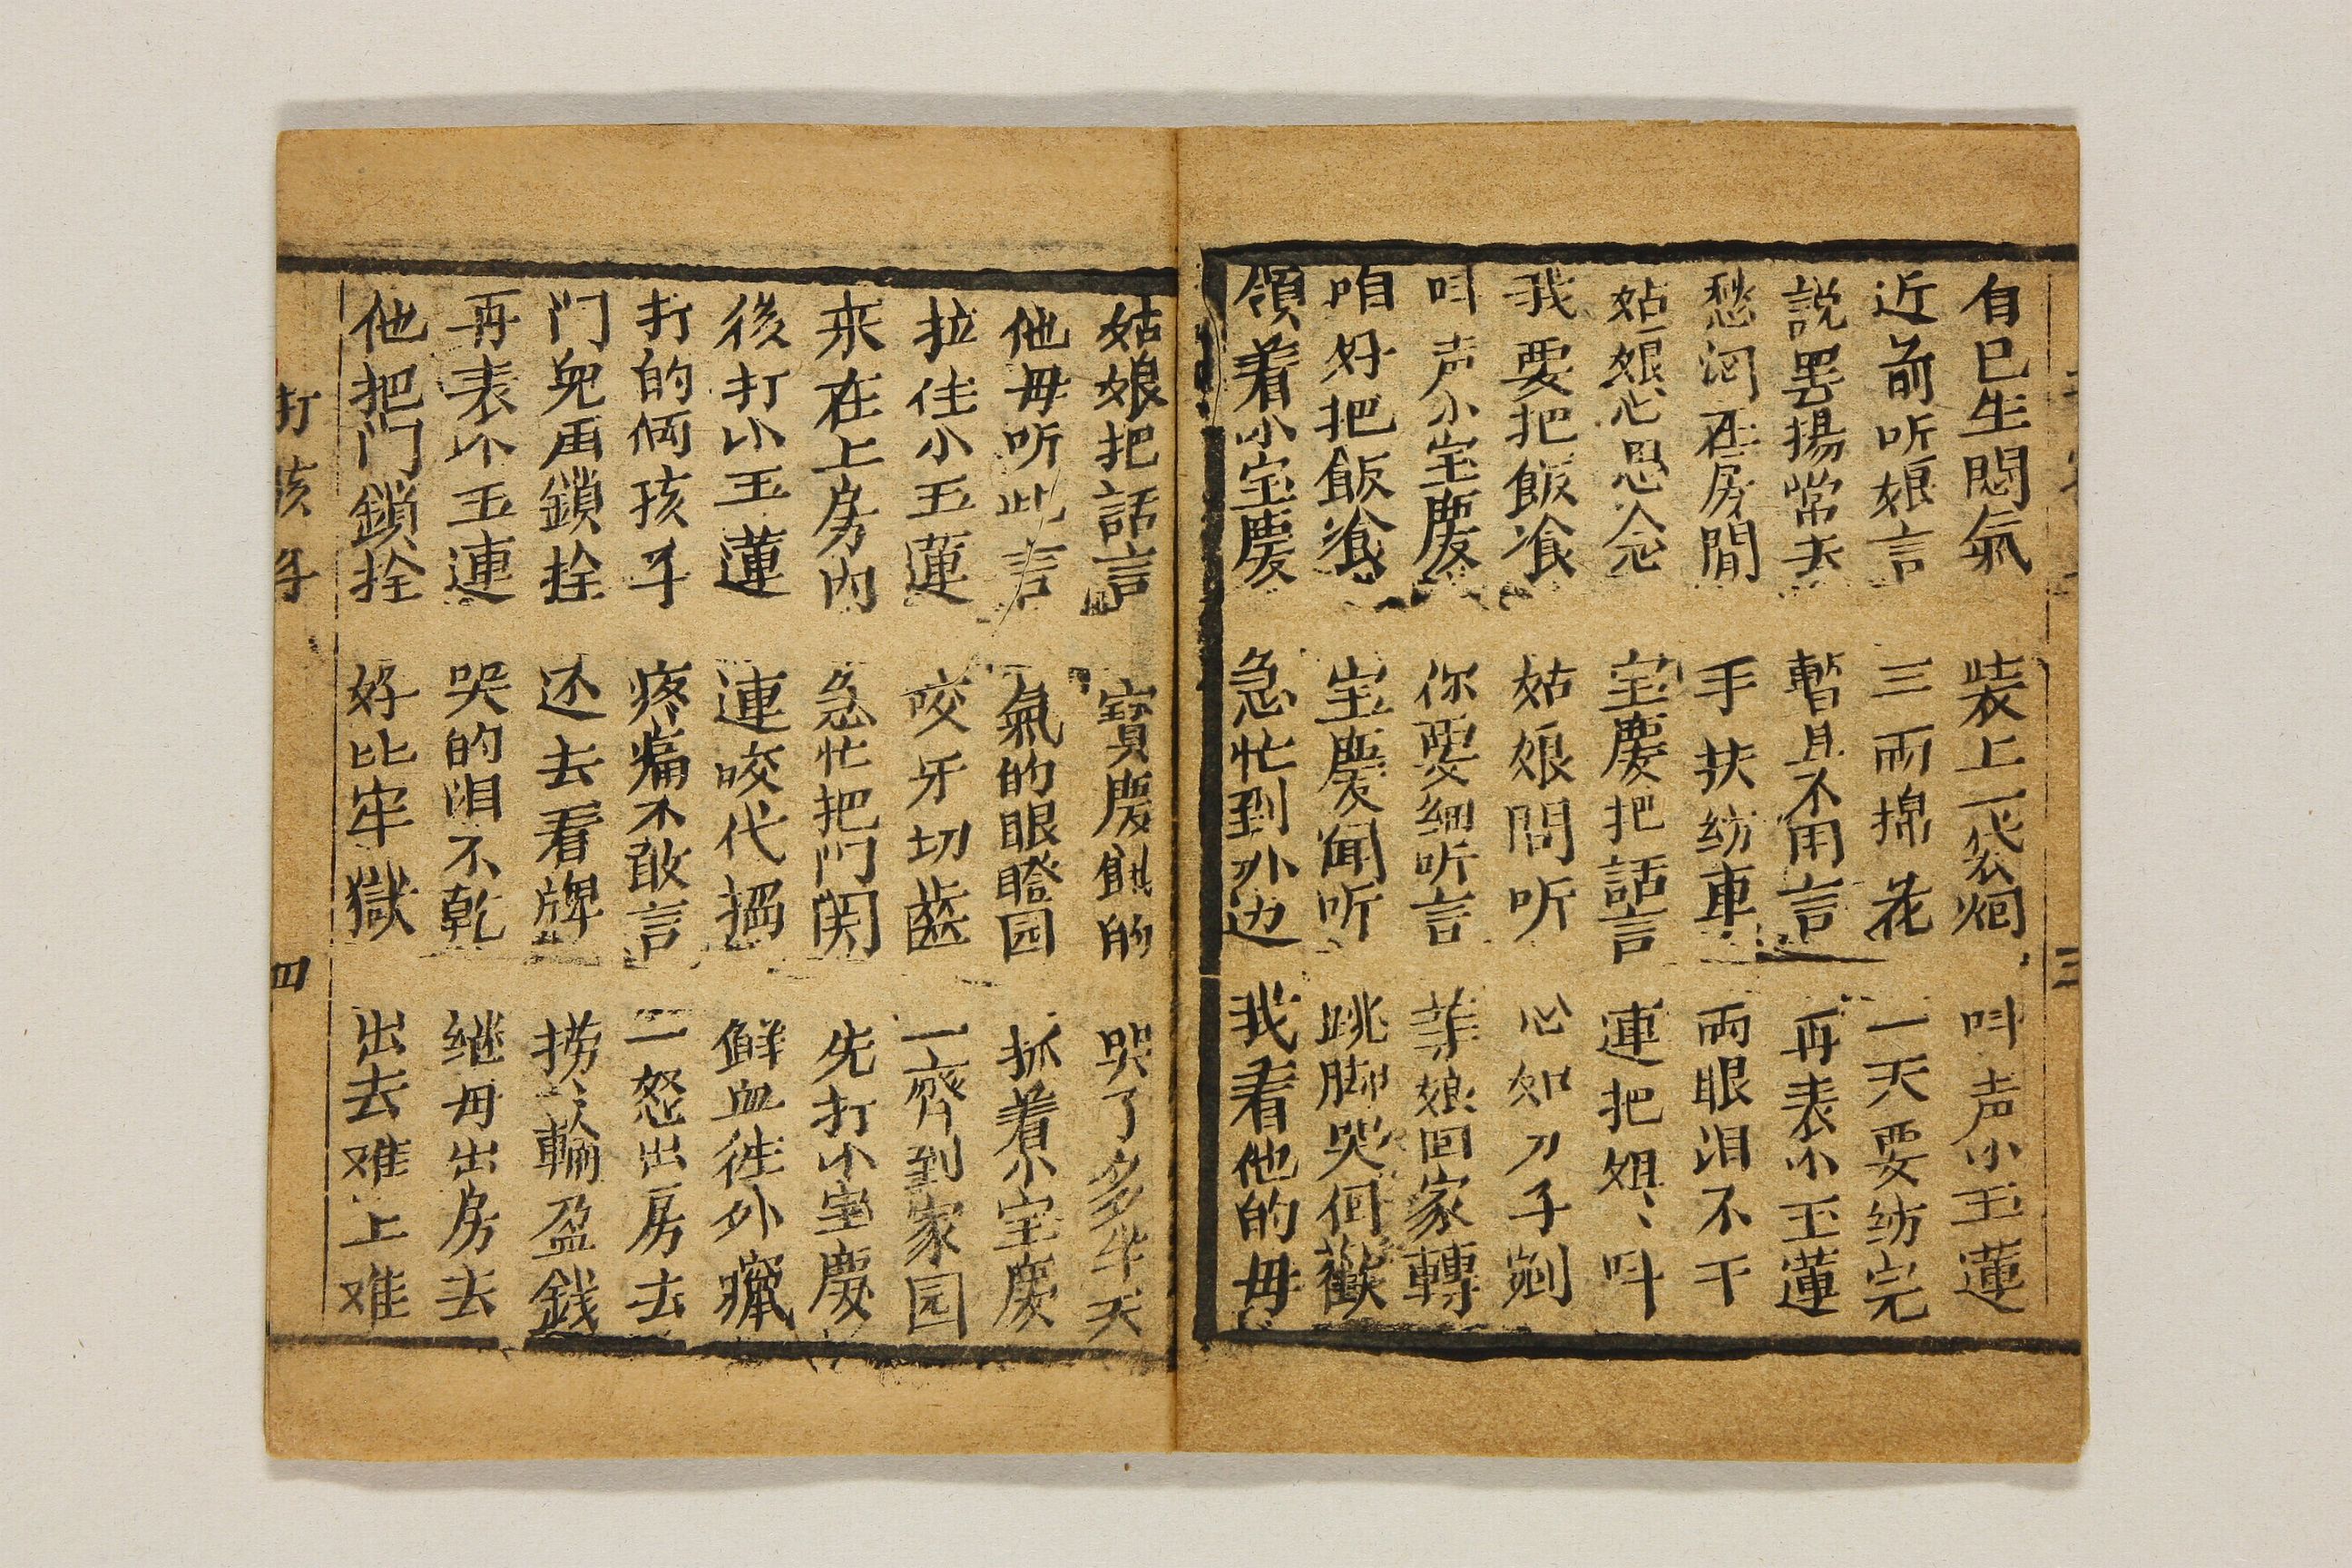 自己生悶氣 装上一袋烟 呌声小玉蓮
近前听娘言 三両棉花 一天要纺完
説罢揚常去 暫且不用言 再表小玉蓮
愁闷在房間 手扶纺車 両眼泪不干
姑娘心思念 宝慶把話言 連把姐〻呌
我要把飯飡 姑娘問听 心如刀子剜
呌声小宝慶 你要細听言 等娘回家轉
咱好把飯飡 宝慶聞听 跳脚哭何歡
領着小宝慶 急忙到外边 我看他的毋
三
姑娘把話言 寳慶餓的 哭了多半天
他毋听此言 氣的眼瞪园 抓着小宝慶
拉住小玉蓮 咬牙切齒 一齊到家园
来在上房内 急忙把门関 先打小宝慶
後打小玉蓮 連咬代搯 鮮血徃外竄
打的俩孩子 疼痛不敢言 二怒出房去
门兒用鎖拴 还去看牌 捞〻輸盈銭
再表小玉連 哭的泪不乾 继毋出房去
他把门鎖拴 好比牢獄 出去难上难
打孩子 四